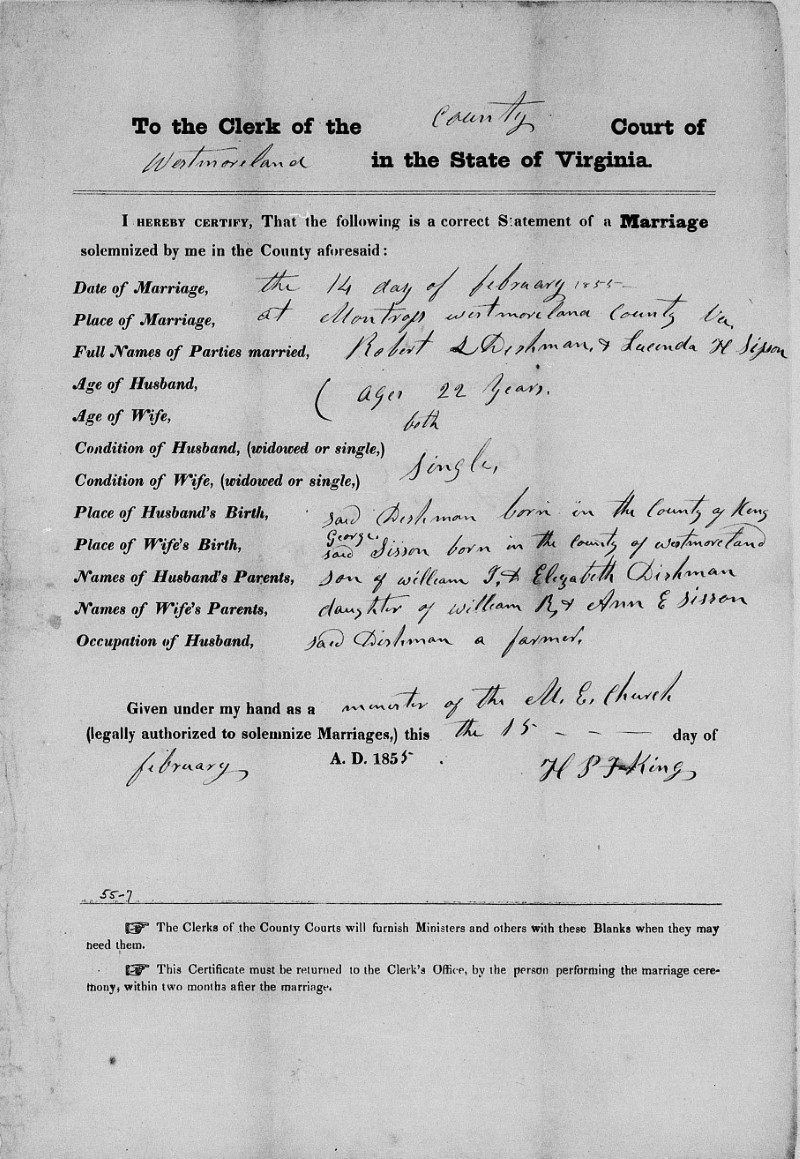 To the Clerk of the County Court of
Westmoreland in the State of Virginia.
I HEREBY CERTIFY, That the following is a correct Statement of a Marriage
solemnized by me in the County aforesaid:
Date of Marriage, the 14 day of february 1855
Place of Marriage, at Montross westmoreland County Va.
Full Names of Parties married, Robert L Dishman, & Lucinda H Sisson
Age of Husband,
( ages 22 Years.
Age of Wife, both
Condition of Husband, (widowed or single,)
single,
Condition of Wife, (widowed or single,)
Place of Husband's Birth, said Dishman born in the County of King
George.
Place of Wife's Birth, said Sisson born in the county of westmoreland
Names of Husband's Parents, son of william T, & Elizabeth Dishman
Names of Wife's Parents, daughter of william R, & Ann E Sisson
Occupation of Husband, said Dishman a farmer,
Given under my hand as a minister of the M. E. Church
(legally authorized to solemnize Marriages,) this the 15 - - - day of
february A. D. 1855. H P F King
55-7
☞ The Clerks of the County Courts will furnish Ministers and others with these Blanks when they may
need them.
☞ This Certificate must be returned to the Clerk's Office, by the person performing the marriage cere-
mony, within two months after the marriage.